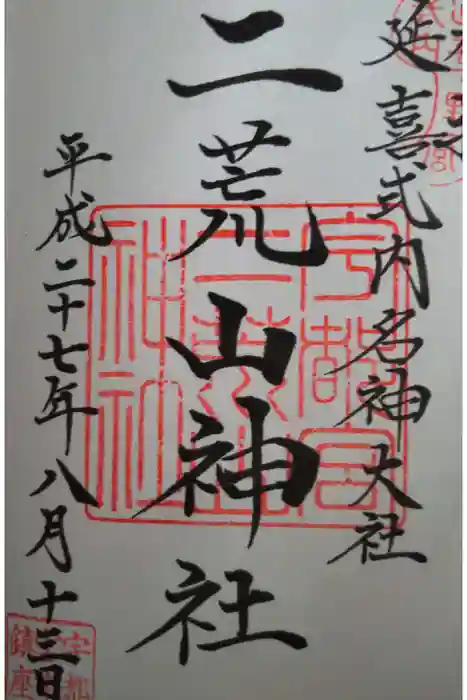 延喜式内名神大社
二荒山神社
平成二十七年八月十三日
宇都宮
二荒山
神社